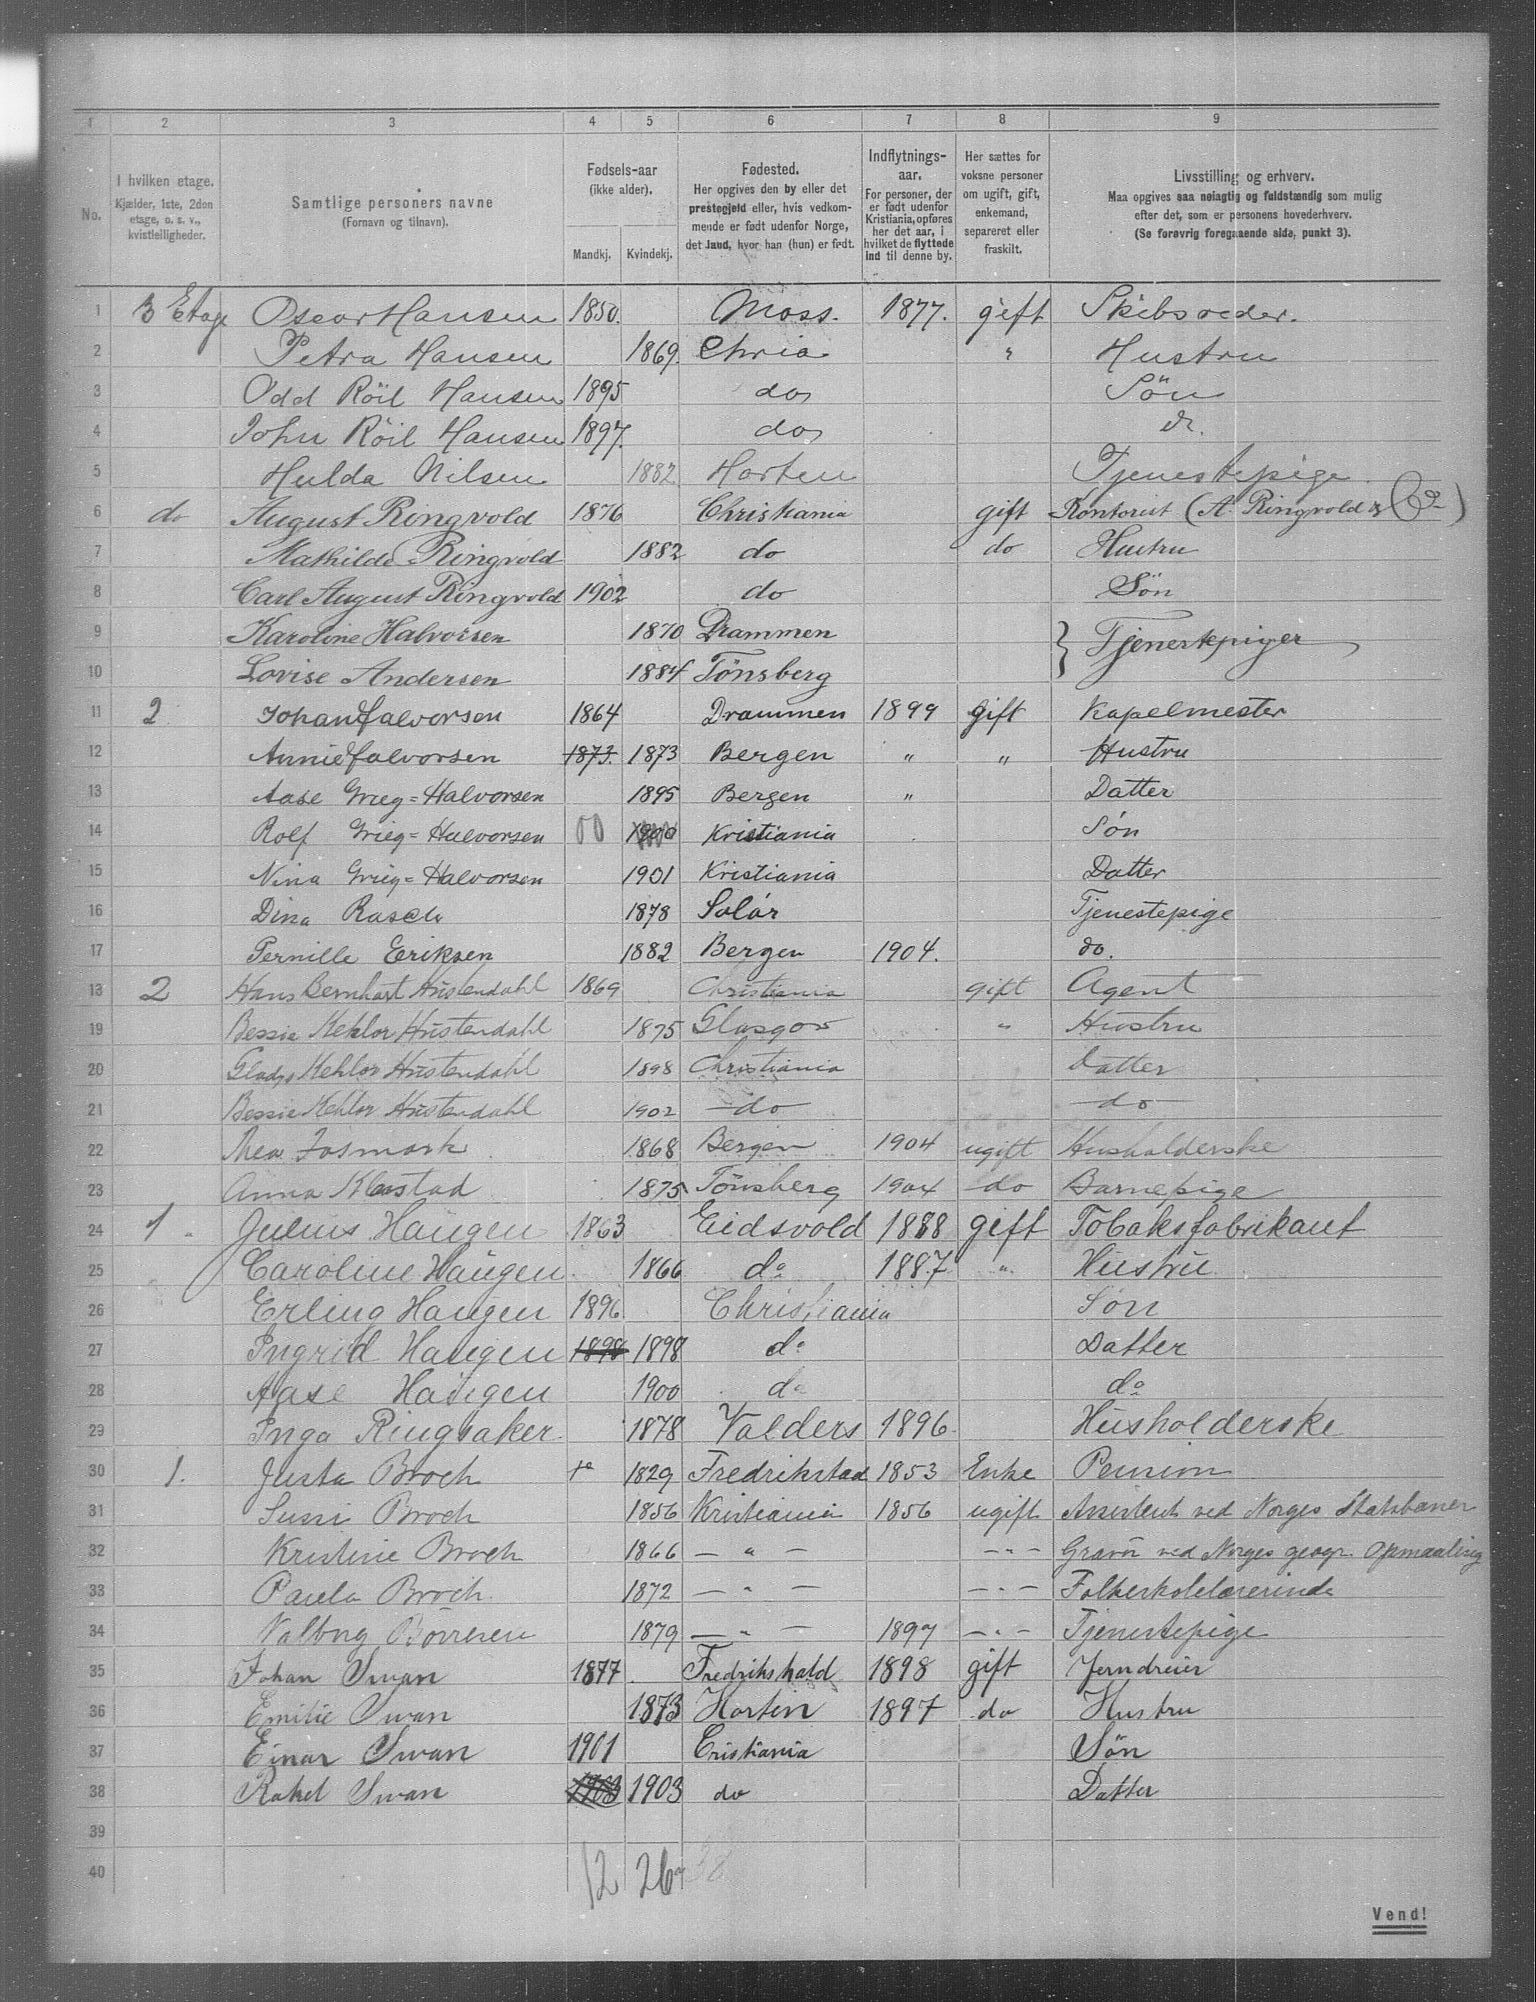 1 2 3 4 5 6 7 8 9
No. I hvilken etage. Kjælder, 1ste, 2den etage, o. s. v., kvistleiligheder. Samtlige personers navne (Fornavn og tilnavn). Fødsels-aar (ikke alder). Mandkj. Kvindekj. Fødested. Her opgives den by eller det prestegjeld eller, hvis vedkommende er født udenfor Norge, det land, hvor han (hun) er født. Indflytnings-aar. For personer, der er født udenfor Kristiania, opføres her det aar, i hvilket de flyttede ind til denne by. Her sættes for voksne personer om ugift, gift, enkemand, separeret eller fraskilt. Livsstilling og erhverv. Maa opgives saa nøiagtig og fuldstændig som mulig efter det, som er personens hovederhverv. (Se forøvrig foregaaende side, punkt 3).
1 3 Etage Oscar Hansen 1850. Moss. 1877. gift Skibsreder.
2 Petra Hansen 1869. Chria " Hustru
3 Odd Röil Hansen 1895 do Sön
4 John Röil Hansen 1897. do do.
5 Hulda Nilsen 1882 Horten Tjenestepige.
6 do August Ringvold 1876 Christiania gift Kontorist (A Ringvold & Co)
7 Mathilde Ringvold 1882 do do Hustru
8 Carl August Ringvold 1902 do Sön
9 Karoline Halvorsen 1870 Drammen } Tjenestepiger
10 Lovise Andersen 1884 Tönsberg
11 2 Johan Halvorsen 1864 Drammen 1899 gift Kapelmester
12 Annie Halvorsen 1873. 1873 Bergen " " Hustru
13 Aase Grieg=Halvorsen 1895 Bergen " Datter
14 Rolf Grieg=Halvorsen 00 1900 Kristiania Søn
15 Nina Grieg=Halvorsen 1901 Kristiania Datter
16 Dina Rasch 1878 Solør Tjenestepige
17 Pernille Eriksen 1882 Bergen 1904. do.
18 2 Hans Bernhart Hustendahl 1869 Christiania gift Agent
19 Bessie Kehlor Hustendahl 1875 Glasgow " Hustru
20 Gladys Kehlor Hustendahl 1898 Christiania Datter
21 Bessie Kehlor Hustendahl 1902 do do
22 Mea 1868 Bergen 1904 ugift Husholderske
23 Anna 1875 Tönsberg 1904 do Barnepige
24 1. Julius Haugen 1863 Eidsvold 1888 gift Tobaksfabrikant
25 Caroline Haugen 1866 do 1887 " Hustru
26 Erling Haugen 1896. Christiania Søn
27 Ingrid Haugen 1898 1898 do Datter
28 Aase Haugen 1900 do do
29 Inga Ringsaker. 1878 Valders 1896 Husholderske
30 1. Justa Broch 1829 Fredrikstad 1853 Enke Pension
31 Susni Broch 1856 Kristiania 1856 ugift Assistent ved Norges Statsbaner
32 Kristine Broch 1866 — " — — " — Gravör ved Norges geogr. Opmaaling
33 Paula Broch. 1872 — " — — " — Folkeskolelærerinde
34 Valbrg Börresen 1879 — " — 1897 — " — Tjenestepige
35 Johan Swan 1877 Fredrikshald 1898 gift Jerndreier
36 Emilie Swan 1873 Horten 1897 do Hustru
37 Einar Swan 1901 Cristiania Søn
38 Rakel Swan 1903 1903 do Datter
39
40 12 26 38
Vend!